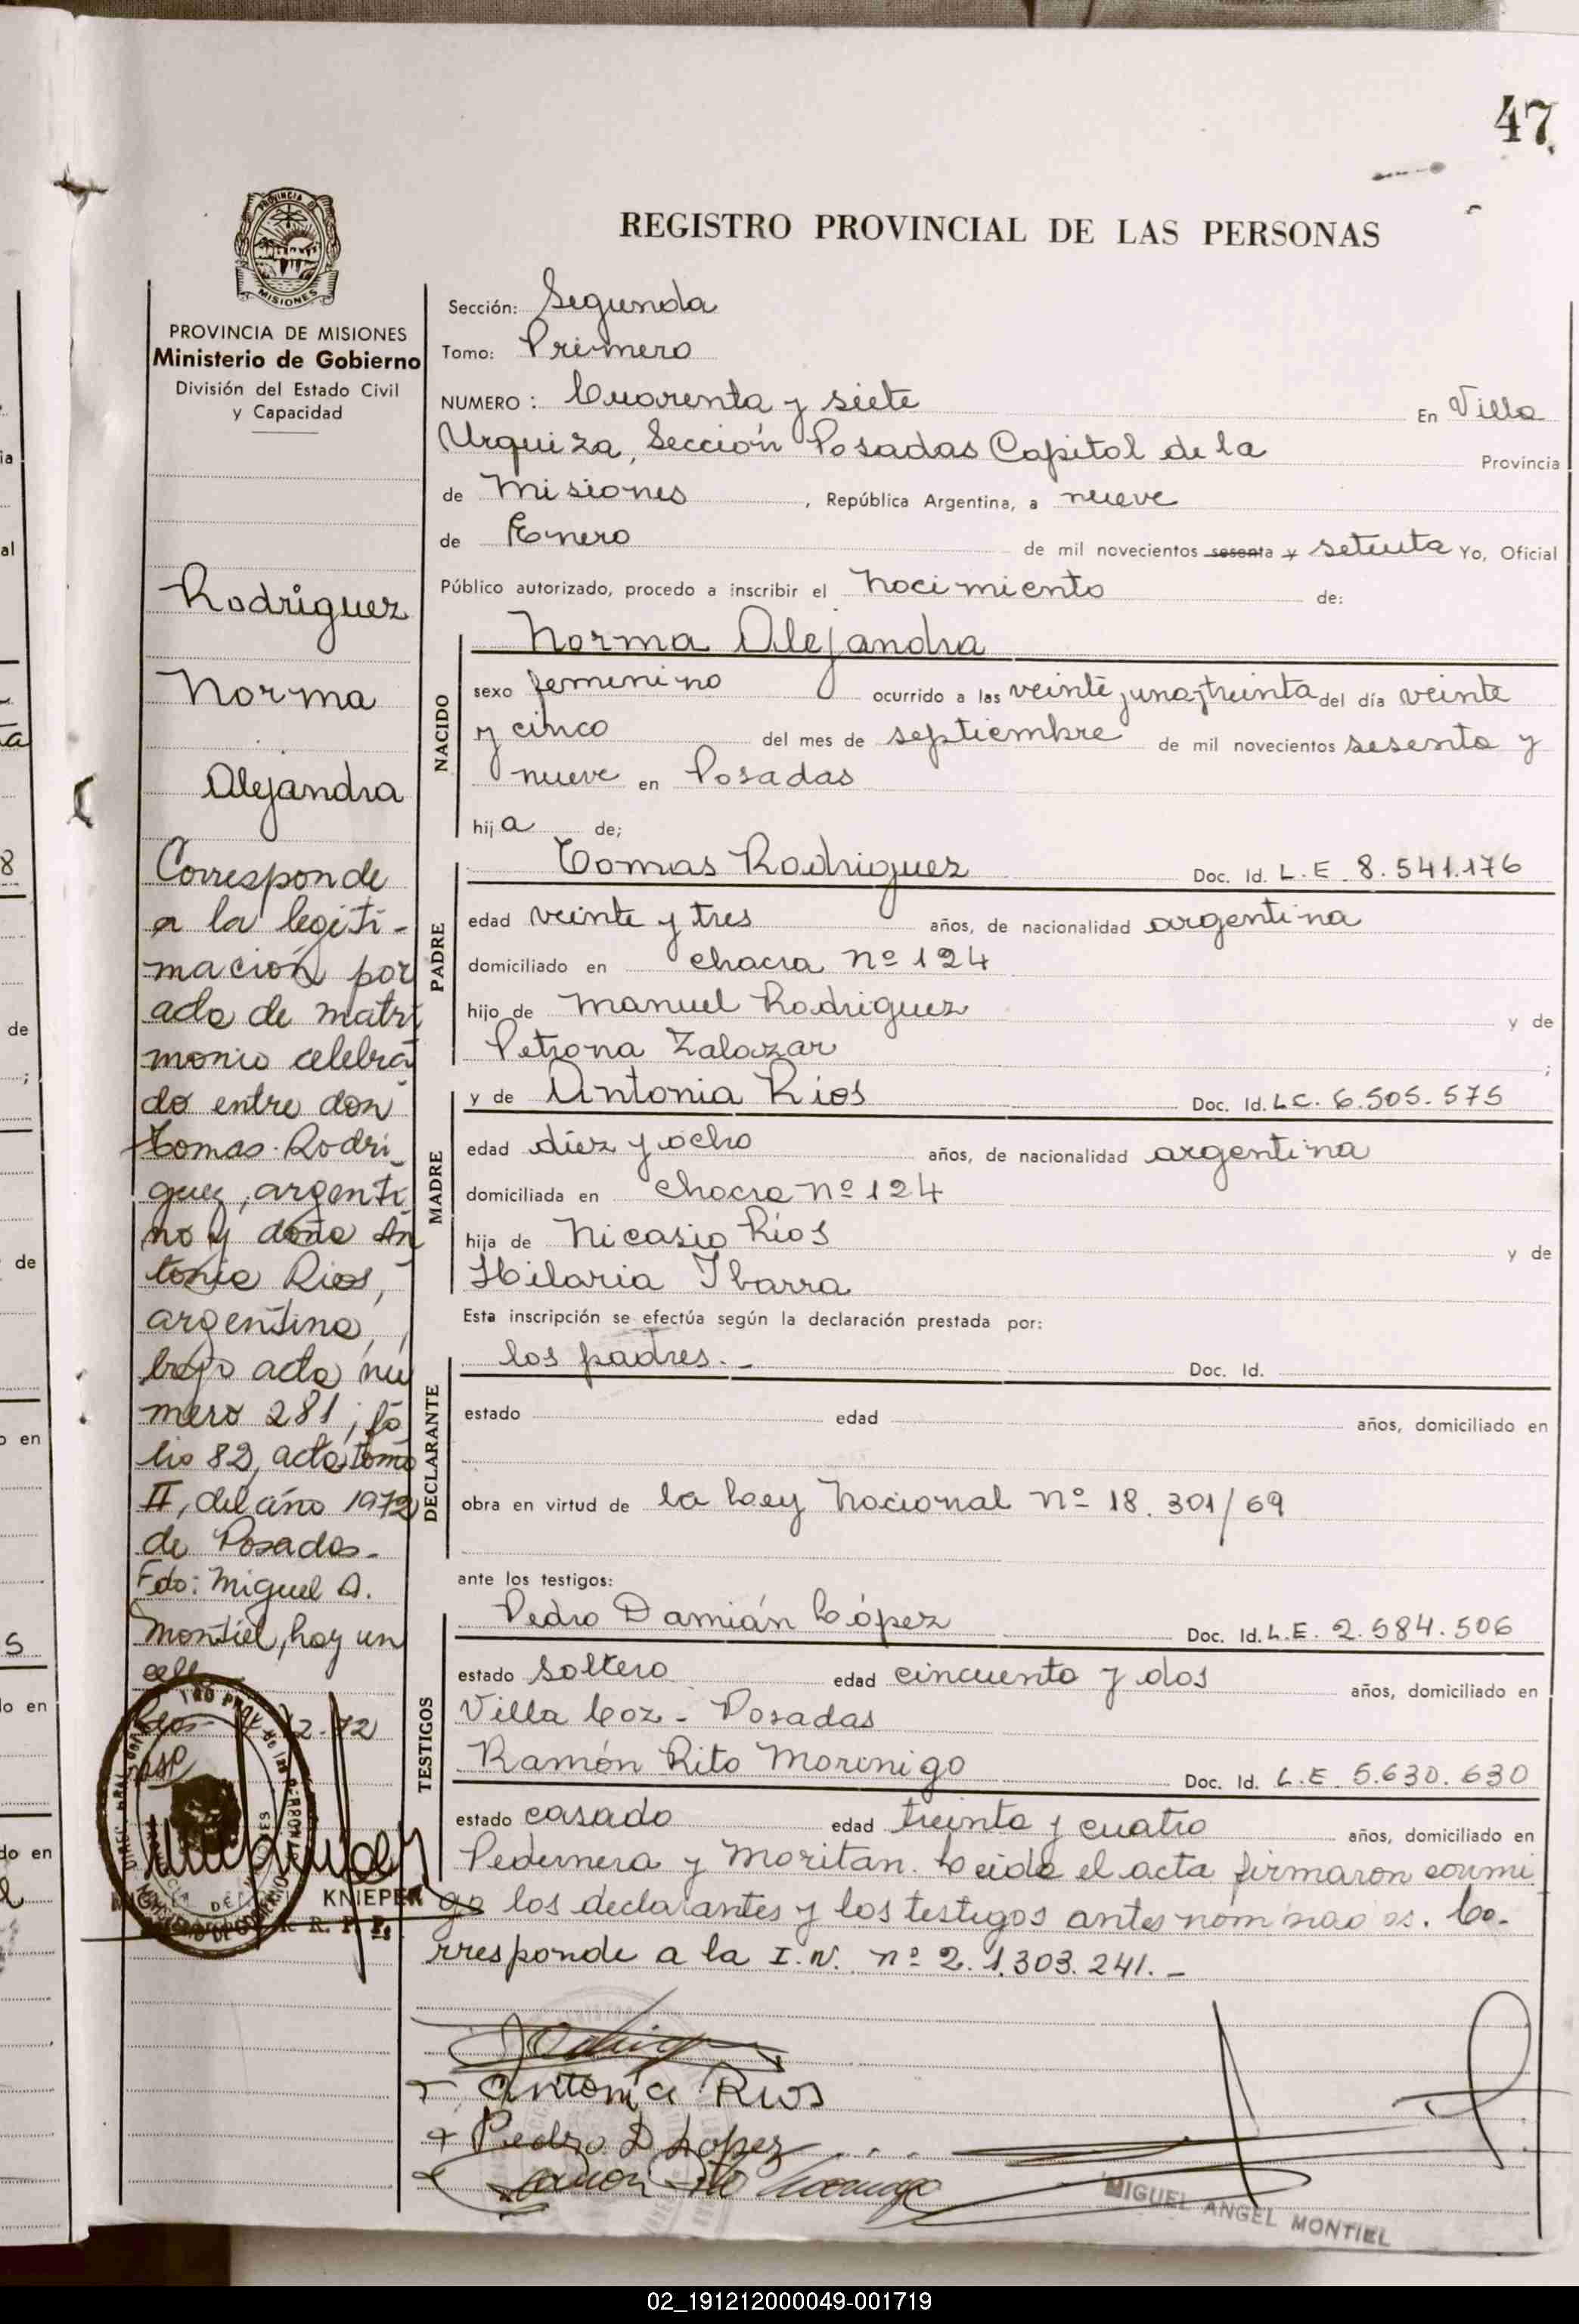 47
PROVINCIA DE MISIONES
MISIONES
REGISTRO PROVINCIAL DE LAS PERSONAS
PROVINCIA DE MISIONES
Ministerio de Gobierno
División del Estado Civil
y Capacidad
Rodriguez
Norma
Alejandra
Corresponde
a la legiti-
macion por
acta de matri
monio celebra
do entre don
Tomas Rodri
guez, argenti
no y doña An
tonia Rios,
argentina,
bajo acta nú
mero 281, fo
lio 82, acta, tomo
II, del año 1972
de Posadas-
Fdo: Miguel A.
Montiel, hay un
sello
Pos- 12-72
KNIEPER
R. P. P.
Sección: Segunda
Tomo: Primero
NUMERO: Cuarenta y siete En Villa
Urquiza, Sección Posadas Capital de la Provincia
de Misiones, República Argentina, a nueve
de Enero de mil novecientos sesenta y setenta Yo, Oficial
Público autorizado, procedo a inscribir el nacimiento de:
NACIDO
Norma Alejandra
sexo femenino ocurrido a las veinte y una y treinta del día veinte
y cinco del mes de septiembre de mil novecientos sesenta y
nueve en Posadas
hija de;
PADRE
Tomas Rodriguez Doc. Id. L.E. 8.541.176
edad veinte y tres años, de nacionalidad argentina
domiciliado en chacra nº 124
hijo de Manuel Rodriguez y de
Petrona Zalazar ;
MADRE
y de Antonia Rios Doc. Id. L.C. 6.505.575
edad diez y ocho años, de nacionalidad argentina
domiciliada en chacra nº 124
hija de Nicasio Ríos y de
Hilaria Ibarra
Esta inscripción se efectúa según la declaración prestada por:
DECLARANTE
los padres.- Doc. Id.
estado edad años, domiciliado en
obra en virtud de la Ley Nacional nº 18.301/69
ante los testigos:
TESTIGOS
Pedro Damián López Doc. Id. L.E. 2.584.506
estado soltero edad cincuenta y dos años, domiciliado en
Villa Coz - Posadas
Ramón Rito Morinigo Doc. Id. L.E. 5.630.630
estado casado edad treinta y cuatro años, domiciliado en
Pedernera y Moritan. Leida el acta firmaron conmi
go los declarantes y los testigos antes nombrados. Co-
rresponde a la I.N. nº 2.1.303.241.-
Antonia Rios
Pedro D Lopez
Ramon Rito Morinigo
MIGUEL ANGEL MONTIEL
02_191212000049-001719